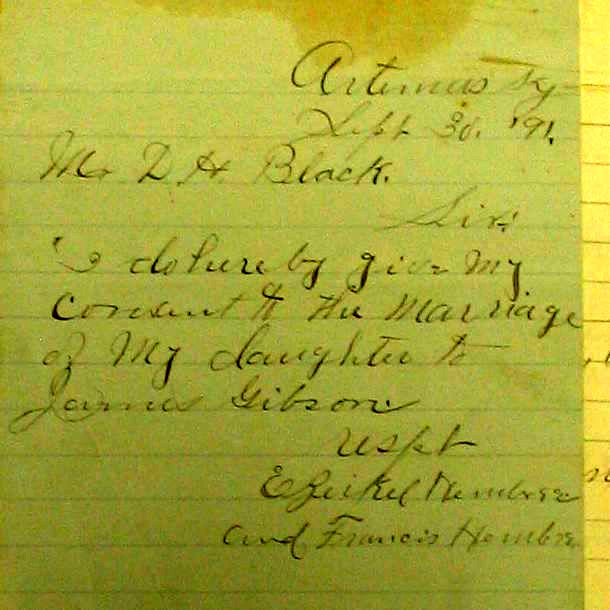 Artemas Ky
Sept 30. '91.
Mr D. H. Black.
Sir:
I do hereby give My
Consent to the Marriage
of My daughter to
James Gibson
Respt
Ezeikel Hembree
and Francis Hembre